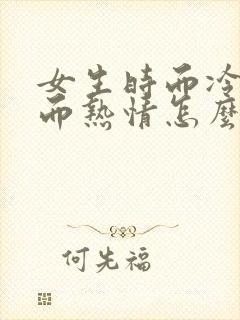 女生時而冷
而熱情怎麼
何先福